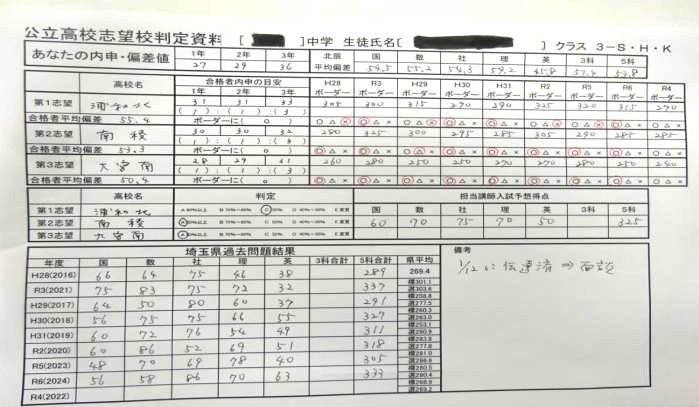 公立高校志望校判定資料 [ ]中学 生徒氏名[ ] クラス 3-S・H・K
あなたの内申・偏差値 1年 2年 3年 北辰 国 数 社 理 英 3科 5科
27 29 36 平均偏差 54.5 55.2 54.3 59.2 45.8 51.9 53.8
高校名 合格者内申の目安 H28 R3 H29 H30 H31 R2 R5 R6 R4
1年 2年 3年 ボーダー ボーダー ボーダー ボーダー ボーダー ボーダー ボーダー ボーダー ボーダー
第1志望 浦和北 31 31 33 305 300 315 270 290 325 320 315 270
( 1 ) : ( 1 ) : ( 3 )
合格者平均偏差 55.4 ボーダーに( 0 ) ◎ △ ×
第2志望 南稜 30 30 32 280 325 300 295 285 305 290 285 285
( 1 ) : ( 1 ) : ( 3 )
合格者平均偏差 53.3 ボーダーに( 0 ) ◎ △ ×
第3志望 大宮南 28 29 31 260 280 250 250 270 270 280 250 240
( 1 ) : ( 1 ) : ( 3 )
合格者平均偏差 50.4 ボーダーに( 0 ) ◎ △ ×
高校名 判定 担当講師入試予想得点
第1志望 浦和北 国 数 社 理 英 3科 5科
第2志望 南稜 60 70 75 70 50 325
第3志望 大宮南
埼玉県過去問題結果 備考
年度 国 数 社 理 英 3科合計 5科合計 県平均
1/12 に伝達済 ⇒ 面談
H28(2016) 66 64 75 46 38 289 269.4
R3(2021) 75 83 75 72 32 337
H29(2017) 64 50 80 60 37 291
H30(2018) 56 75 75 66 55 327
H31(2019) 60 72 76 54 49 311
R2(2020) 60 86 52 69 51 318
R5(2023) 48 70 69 78 40 305
R6(2024) 56 58 86 70 63 333
R4(2022)